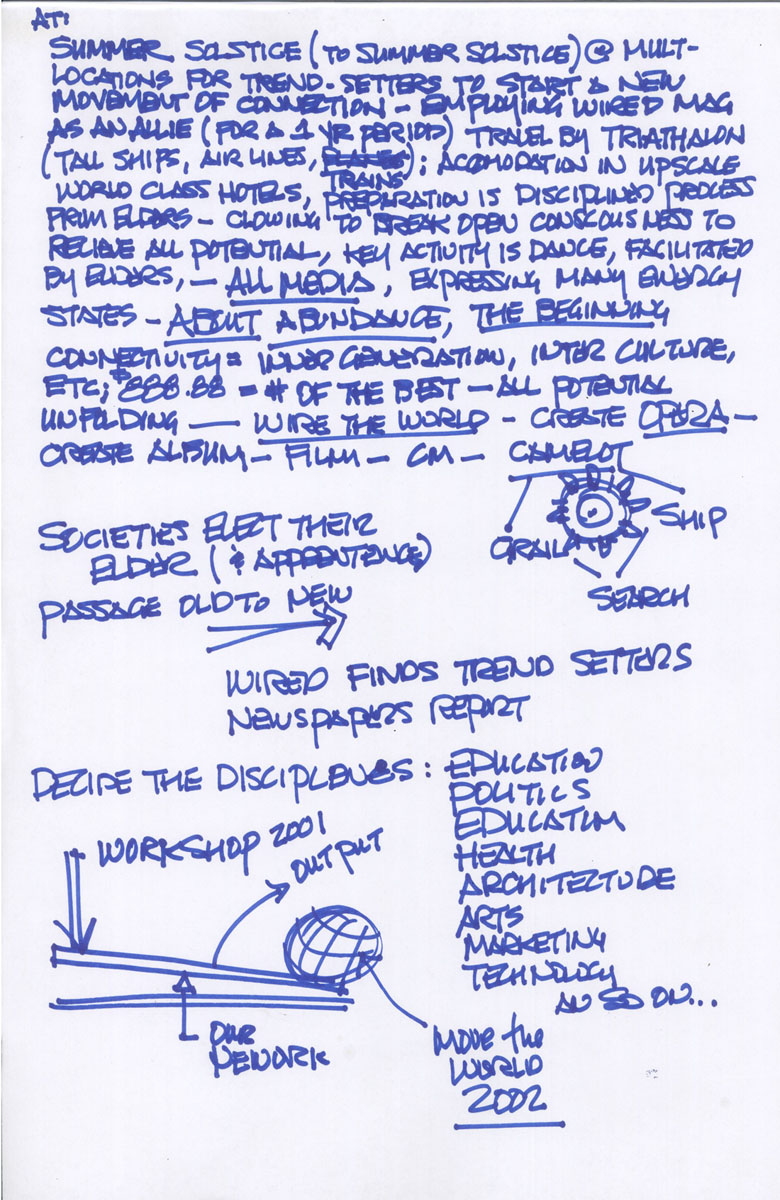 AT:
SUMMER SOLSTICE (TO SUMMER SOLSTICE) @ MULT-
LOCATIONS FOR TREND-SETTERS TO START A NEW
MOVEMENT OF CONNECTION - EMPLOYING WIRED MAG
AS AN ALLIE (FOR A 1 YR PERIOD) TRAVEL BY TRIATHALON
(TALL SHIPS, AIR LINES, TRAINS); ACOMODATION IN UPSCALE
WORLD CLASS HOTELS, PREPARATION IS DISCIPLINED PROCESS
FROM ELDERS - CLOWING TO BREAK OPEN CONSCOUSNESS TO
RELIEVE ALL POTENTIAL, KEY ACTIVITY IS DANCE, FACILITATED
BY ELDERS, - ALL MEDIA, EXPRESSING MANY ENERGY
STATES - ABOUT ABUNDANCE, THE BEGINNING
CONNECTIVITY = INNER GENERATION, INTER CULTURE,
ETC; $888.88 = # OF THE BEST - ALL POTENTIAL
UNFOLDING - WIRE THE WORLD - CREATE OPERA -
CREATE ALBUM - FILM - CM - CAMELOT
GRAIL
SHIP
SEARCH
SOCIETIES ELECT THEIR
ELDER (& APPRENTENCE)
PASSAGE OLD TO NEW
WIRED FINDS TREND SETTERS
NEWSPAPERS REPORT
DECIDE THE DISCIPLENES: EDUCATION
POLITICS
EDUCATION
HEALTH
ARCHITECTUDE
ARTS
MARKETING
TECHNOLOGY
AN SO ON...
WORKSHOP 2001
OUTPUT
OUR
NEWORK
MOVE the
WORLD
2002